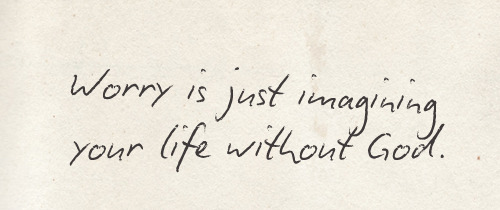 Worry is just imagining
your life without God.